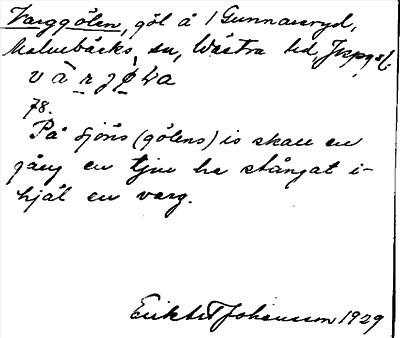 Varggölen, göl å 1 Gunnarsryd,
Malmbäcks sn, Västra hd, Jkpgs l.
v à r j ø̄ l a
78.
På sjöns (gölens) is skall en
gång en tjur ha stångat i-
hjäl en varg.
Erikbt Johansson 1929